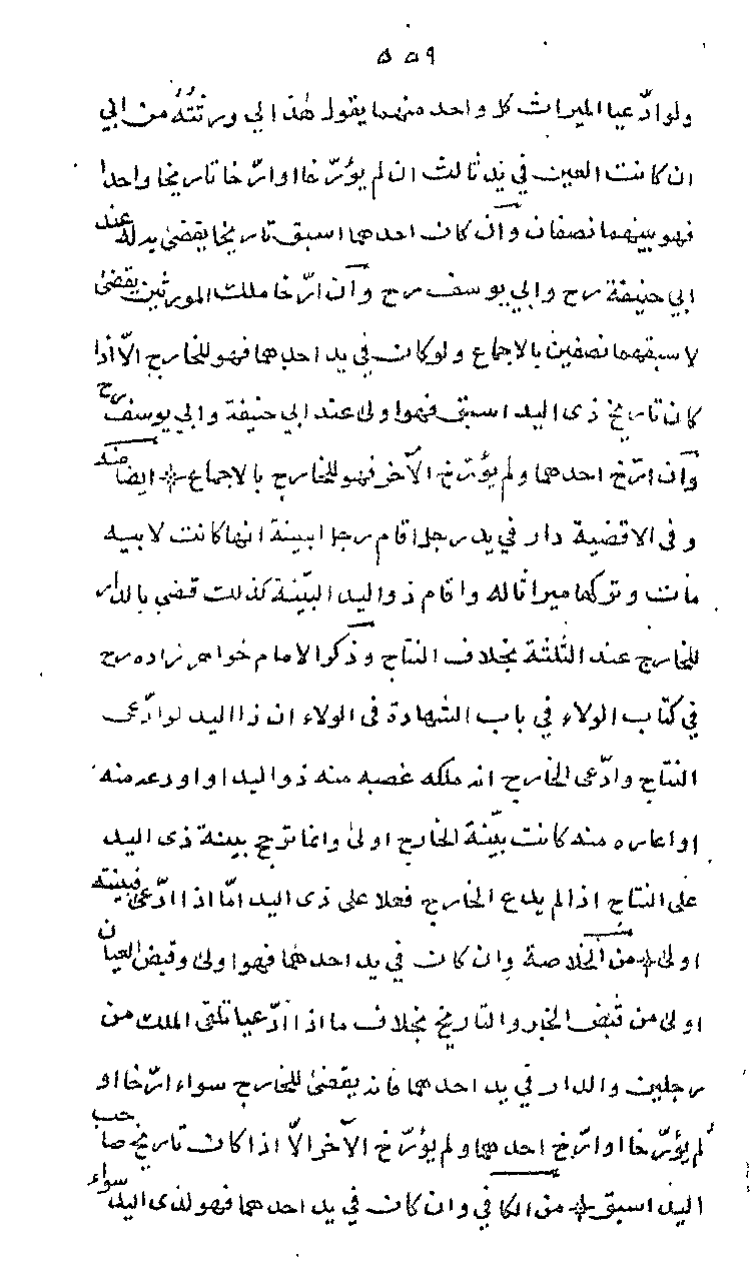 ٥٥٩
ولو ادّعيا الميراث كل واحد منهما يقول هذا لي ورثتُهُ من ابي
ان كانت العين في يد ثالث ان لم يؤرّخا او ارّخا تاريخا واحدا
فهو بينهما نصفان وان كان احدهما اسبق تاريخا يقضى به له عند
ابي حنيفة رح وابي يوسف رح وان ارّخا ملك المورثين يقضى
لاسبقهما نصفين بالاجماع ولو كان في يد احدهما فهو للخارج الّا اذا
كان تاريخ ذى اليد اسبق فهو اولى عند ابي حنيفة وابي يوسف رح
وان ارّخ احدهما ولم يؤرّخ الآخر فهو للخارج بالاجماع ايضا منه
وفى الاقضية دار في يد رجل اقام رجل ابينة انها كانت لابيه
مات وتركها ميراثا له واقام ذو اليد البيّنة كذلك قضي بالدار
للخارج عند الثلثة بخلاف النتاج وذكر الامام خواهر زاده رح
في كتاب الولاء في باب الشهادة فى الولاء ان ذا اليد لو ادّعى
النتاج وادّعى الخارج انه ملكه غصبه منه ذو اليد او اودعه منه
او اعاره منه كانت بيّنة الخارج اولى وانما ترجح بينة ذى اليد
على النتاج اذا لم يدع الخارج فعلا على ذى اليد امّا اذا ادّعى فبينته
اولى من الخلاصة وان كان في يد احدهما فهو اولى وقبض العيان
اولى من قبض الخبر والتاريخ بخلاف ما اذا ادّعيا تلقى الملك من
رجلين والدار في يد احدهما فانه يقضى للخارج سواء ارّخا او
لم يؤرّخا او ارّخ احدهما ولم يؤرّخ الآخر الّا اذا كان تاريخ صاحب
اليد اسبق من الكافي وان كان في يد احدهما فهو لذى اليد سواء